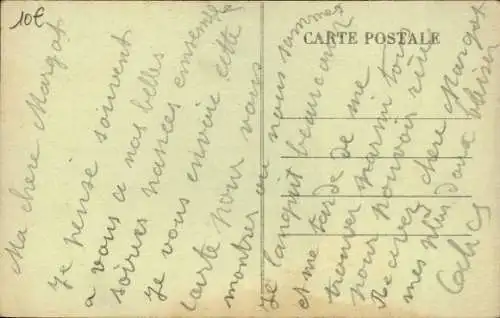 10€
CARTE POSTALE
Ma chere Margot
Je pense souvent
a vous a nos belles
soirées passées ensemble
Je vous envoie cette
carte pour vous
montrer ou nous sommes
Je languit beaucoup
et me tarde de me
trouver parmi tous
pour pouvoir rire
Recevez chere Margot
mes plus doux baisers